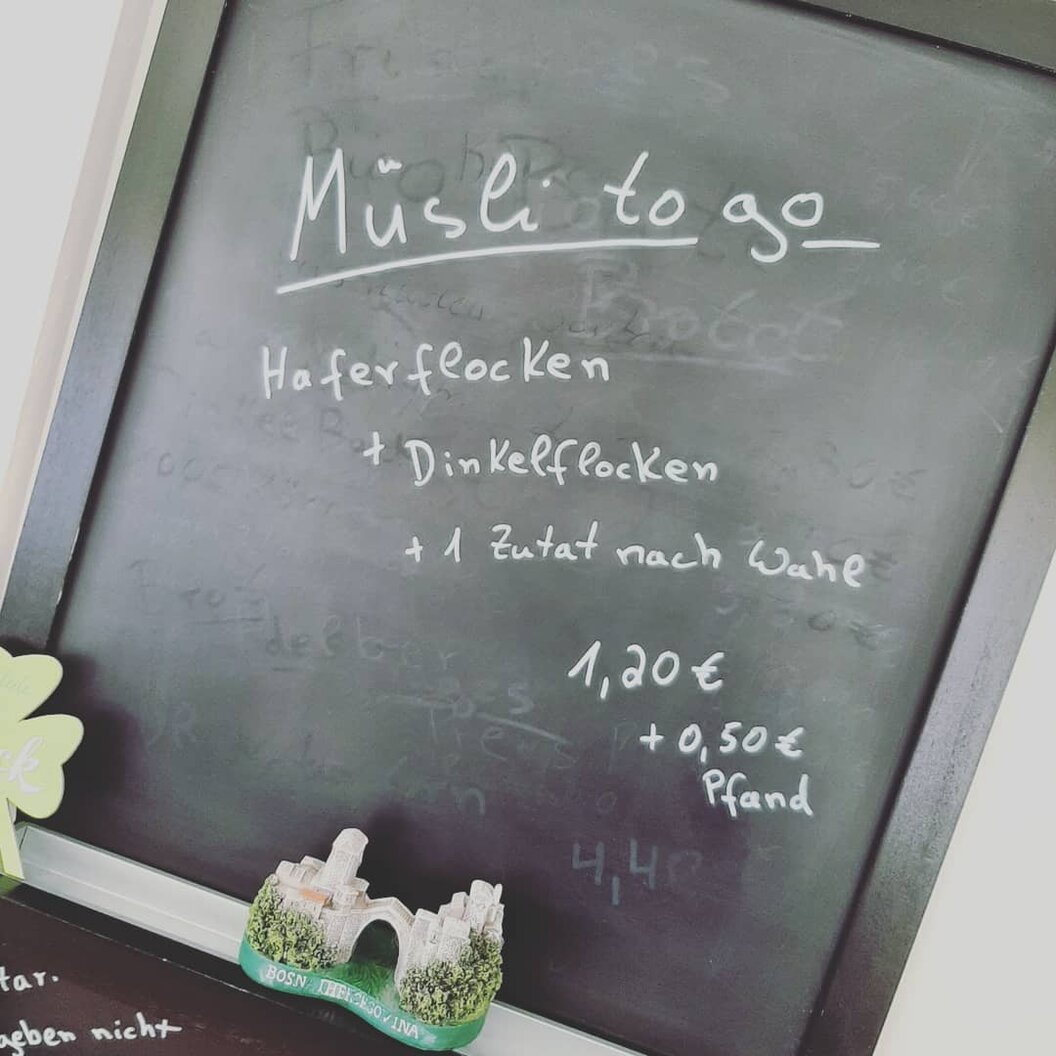 Müsli to go
Haferflocken
+ Dinkelflocken
+ 1 Zutat nach Wahl
1,20 €
+ 0,50 €
Pfand
4,40
ck
BOSNA I HERCEGOVINA
tar.
geben nicht